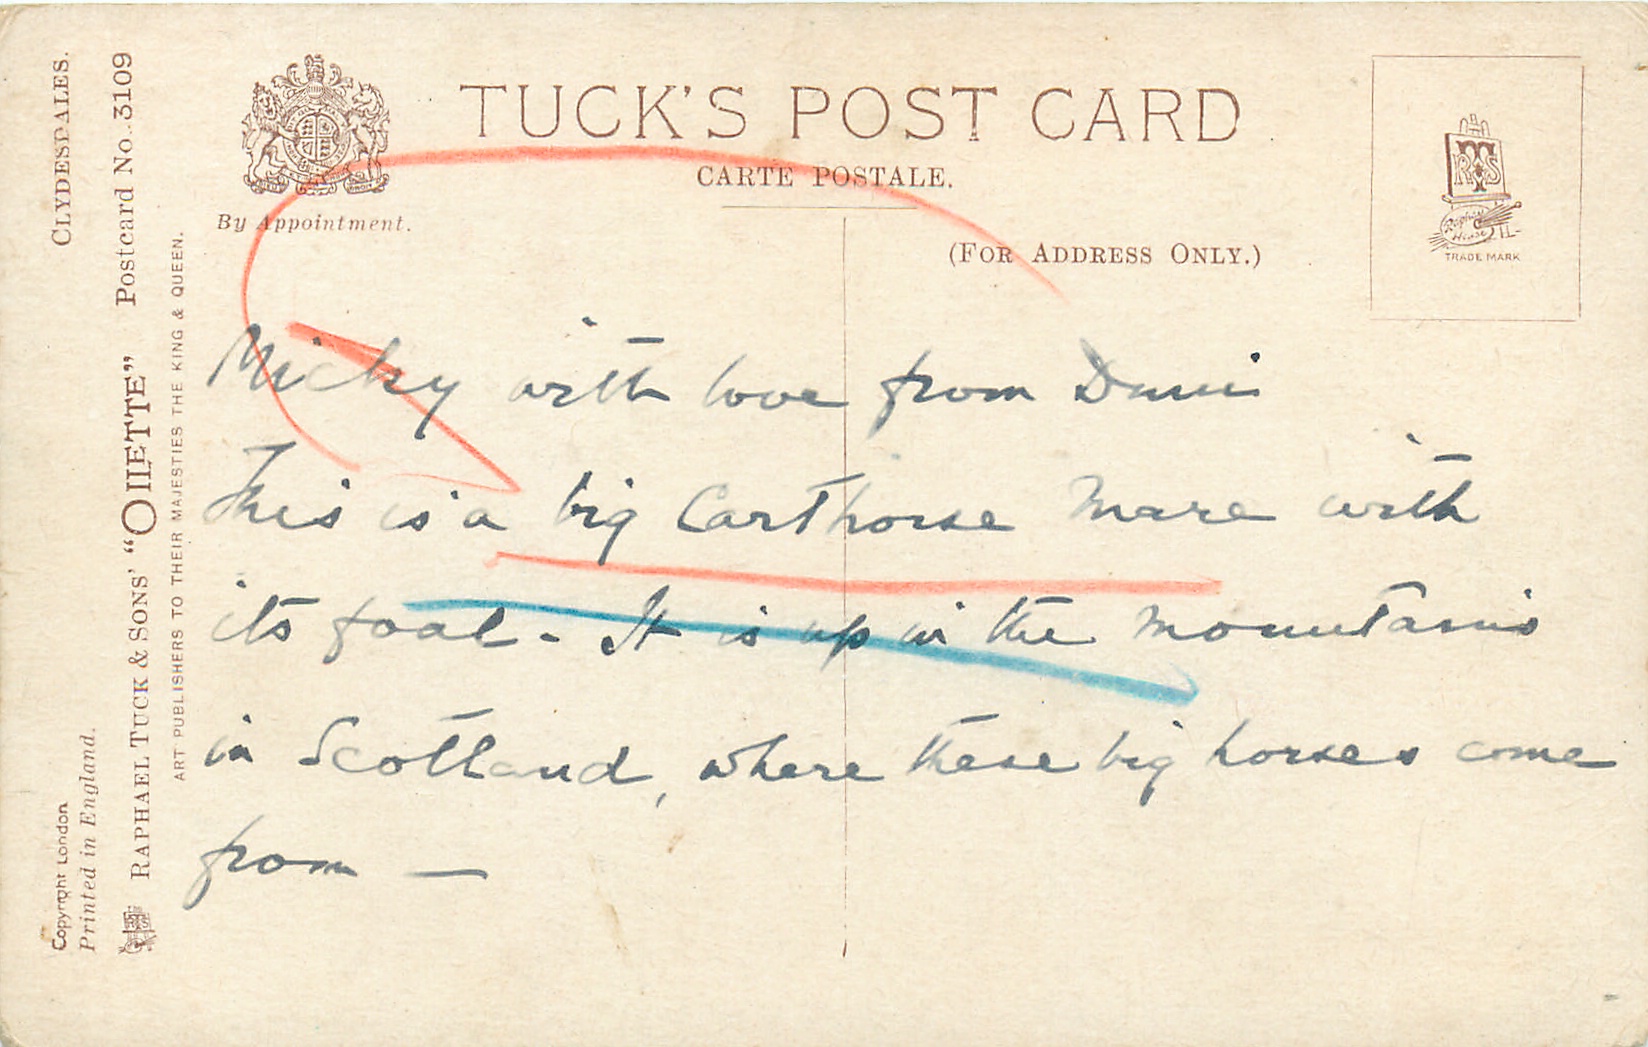 CLYDESDALES.
Postcard No. 3109
RAPHAEL TUCK & SONS' "OILETTE"
ART PUBLISHERS TO THEIR MAJESTIES THE KING & QUEEN.
Copyright London
Printed in England.
By Appointment.
TUCK'S POST CARD
CARTE POSTALE.
(FOR ADDRESS ONLY.)
RTS
Raphael House
TRADE MARK
Micky with love from
This is a big Carthorse Mare with
its foal - It is up in the Mountains
in Scotland, where these big horses come
from —